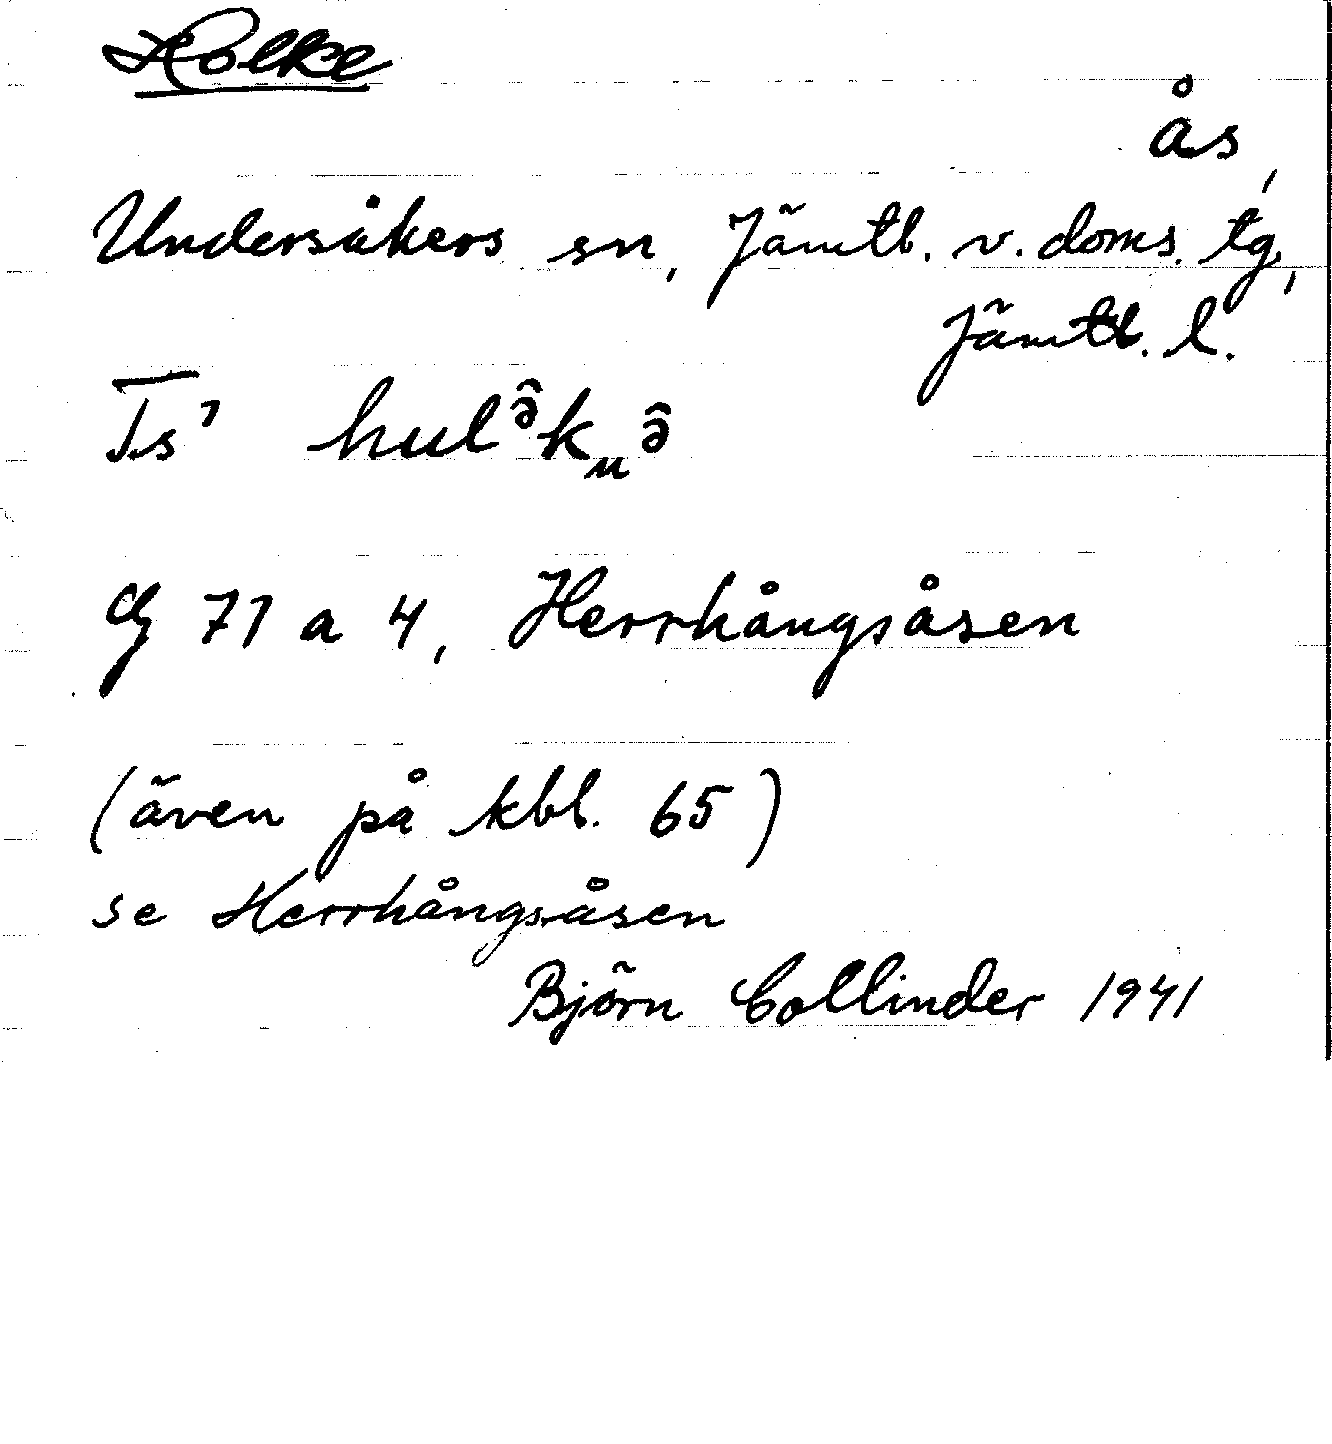 Holke
ås,
Undersåkers sn, Jämtl. v. doms. tg,
Jämtl. l.
hulə̂kᵤə̂
71 a 4, Herrhångsåsen
(även på kbl. 65)
se Herrhångsåsen
Björn Collinder 1941